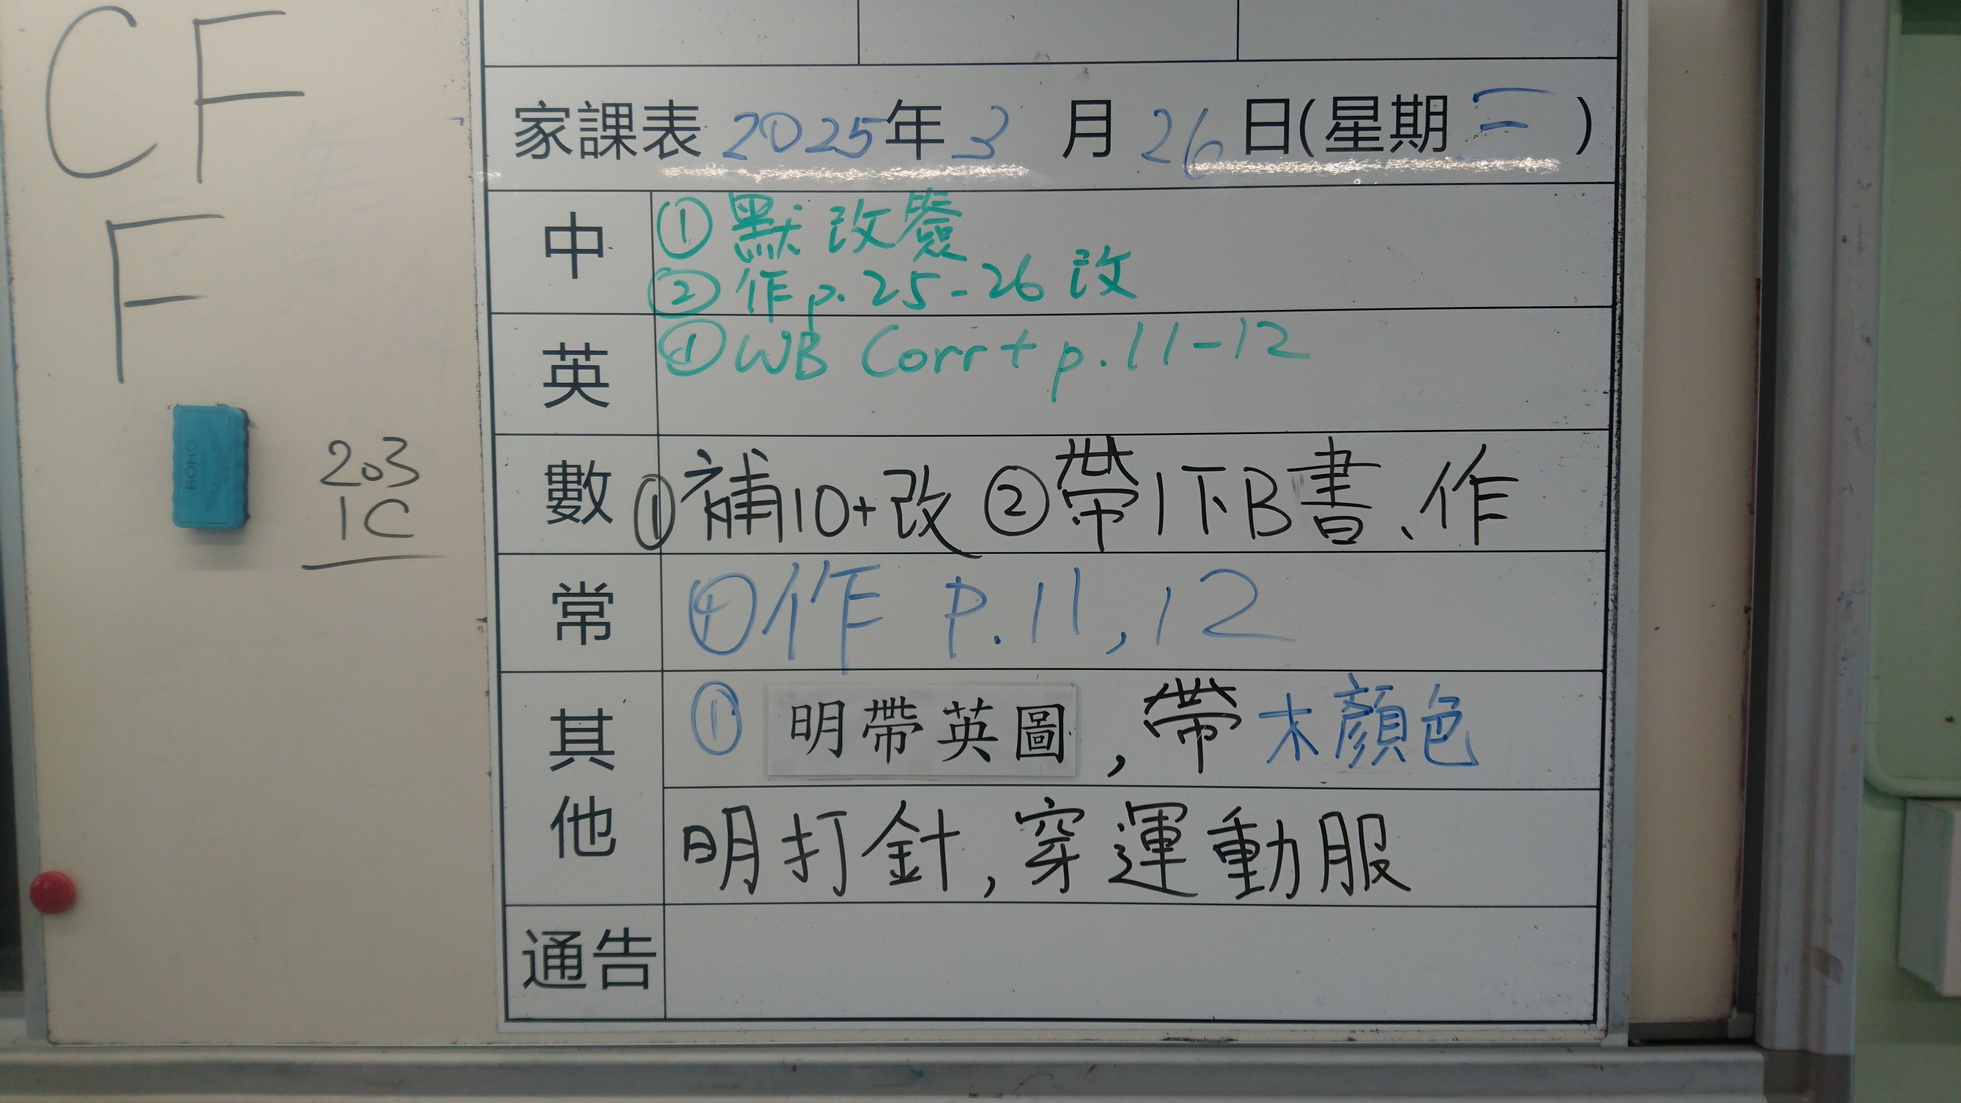 CF
F
203
1C
家課表 2025年 3 月 26 日(星期 三 )
中 ①默 改簽
②作 p. 25-26 改
英 ①WB Corr + p.11-12
數 ①補10+改 ②帶1下B書、作
常 ①作 P.11,12
其他 ① 明帶英圖,帶木顏色
明打針,穿運動服
通告